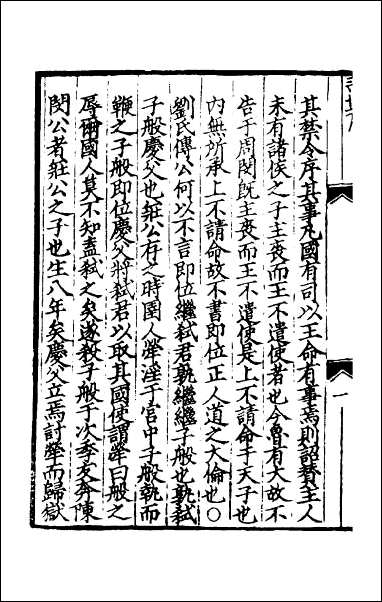 其禁令序其事凡國有司以王命有事焉則詔贊主人
未有諸侯之子主喪而王不遣使者也今魯有大故不
告于周閔既主喪而王不遣使是上不請命于天子也
内無所承上不請命故不書即位正人道之大倫也〇
劉氏傳公何以不言即位繼弑君孰繼繼子般也孰弑
子般慶父也莊公存之時圉人犖淫于宫中子般執而
鞭之子般即位慶父將弑君以取其國使謂犖曰般之
辱爾國人莫不知盍弑之矣遂殺子般于次季友奔陳
閔公者莊公之子也生八年矣慶父立焉討犖而歸獄
一